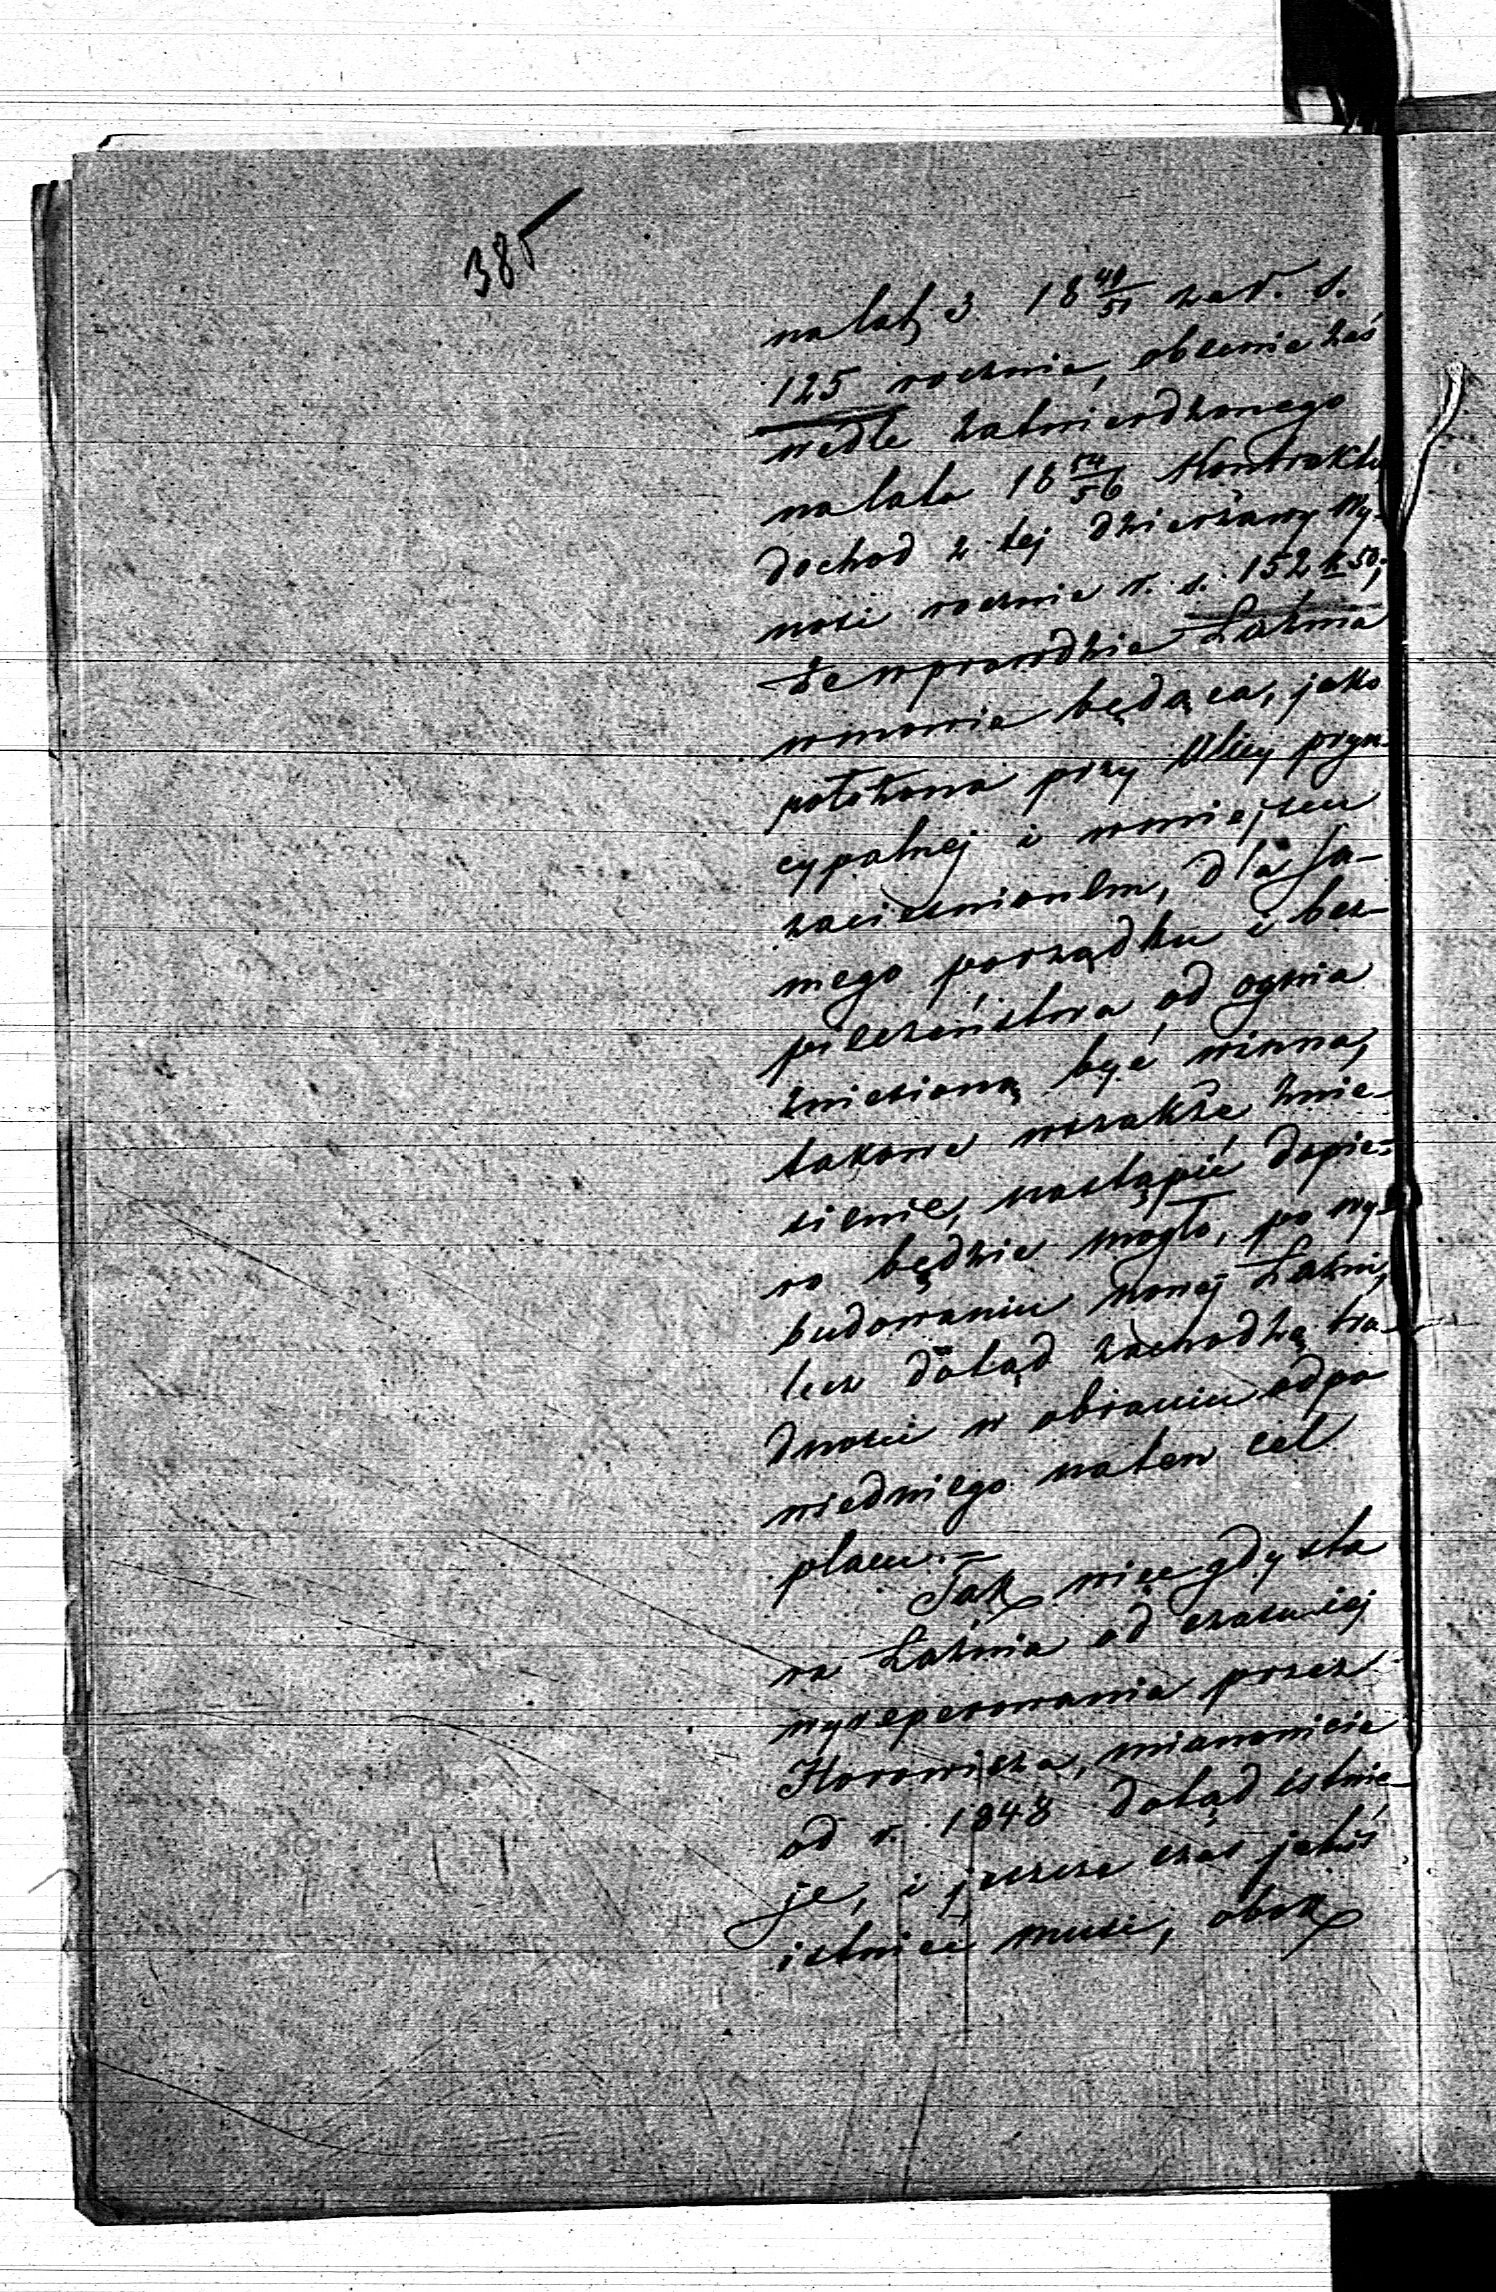 385
na lat 3 18 49/51 za r. s.
125 rocznie, obecnie zaś
wedle zatwierdzonego
na lata 18 54/56 Kontraktu
dochod z tej dzierżawy wy-
nosi rocznie r. s. 152 k 50;
że wprawdzie Łaźnia
w mowie będąca, jako
położona przy Ulicy pryn-
cypalnej i w miejscu
zacieśnionem, dla sa-
mego porządku i bez-
pieczeństwa od ognia
zniesioną być winna,
takowe wszakże znie-
sienie, nastąpić dopie-
ro będzie mogło, po wy-
budowaniu nowej Łaźni,
lecz dotąd zachodzą tru-
dności w obraniu odpo
wiedniego na ten cel
placu.—
Tak więc gdy sta
ra Łaźnia od czasu jej
wyreperowania przez
Horowicza, mianowicie
od r. 1848 dotąd istnie-
je, i jeszcze czas jakiś
istnieć musi, obok